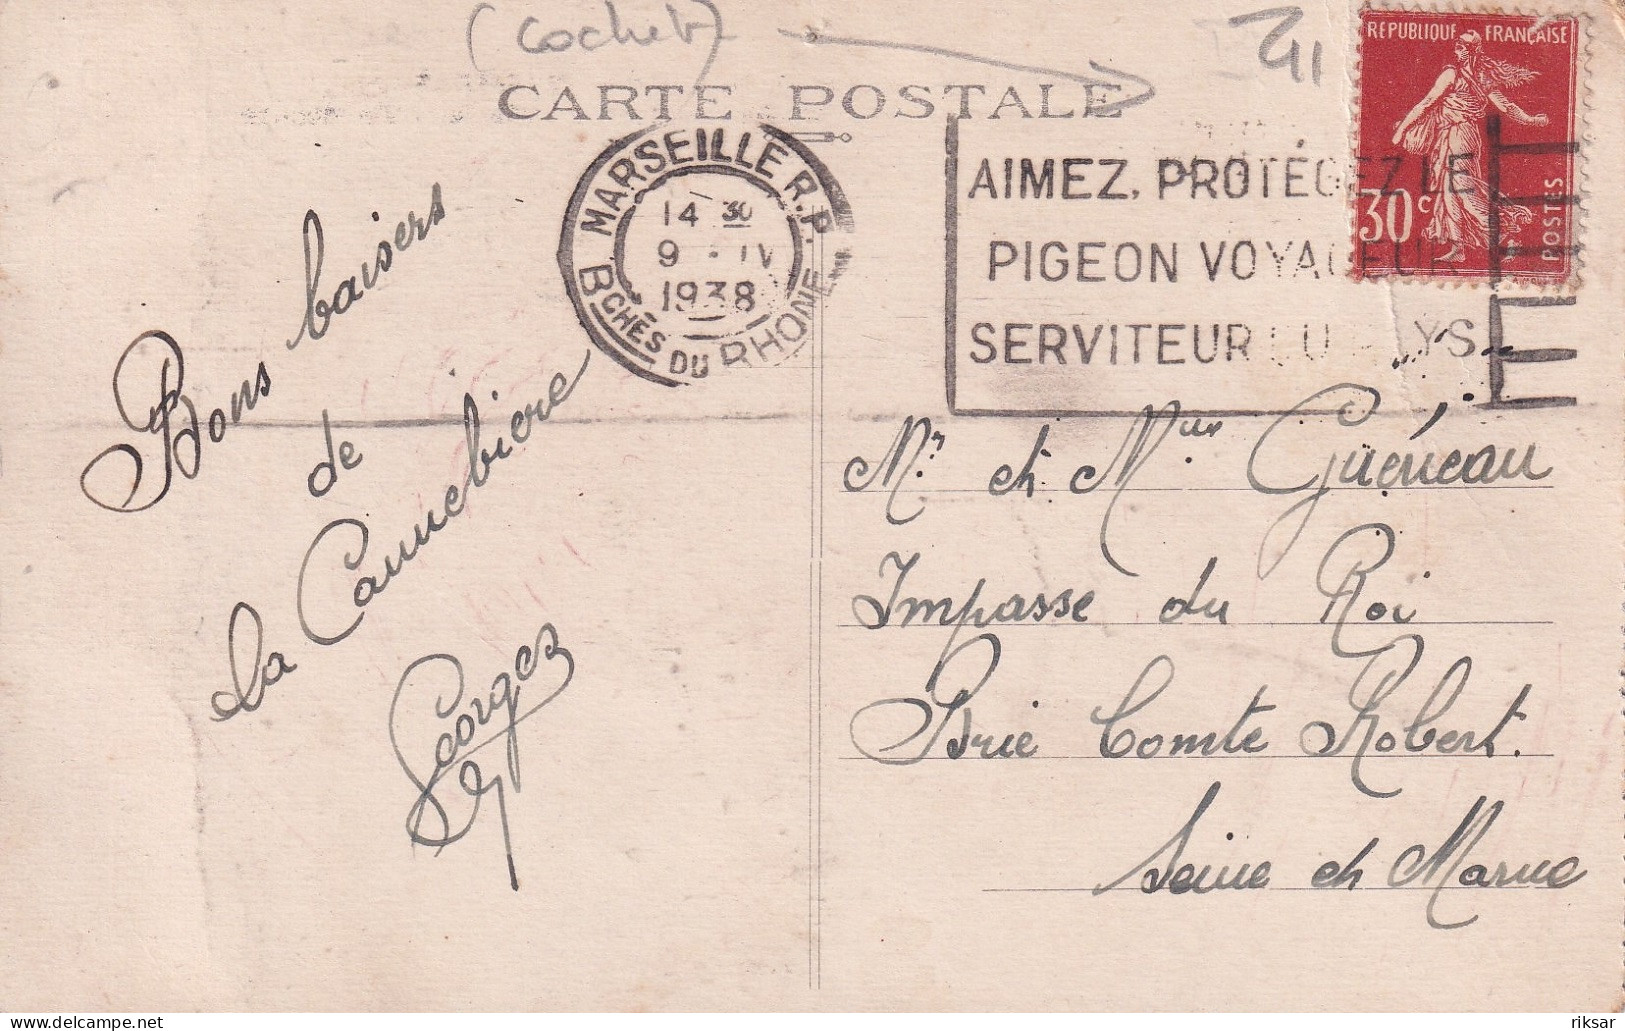 (Cochet)
CARTE POSTALE
RÉPUBLIQUE FRANÇAISE
30c
POSTES
MARSEILLE R.P.
14 30
9 - IV
1938
BCHES DU RHONE
AIMEZ, PROTÉGEZ LE
PIGEON VOYAGEUR
SERVITEUR DU PAYS
Bons baisers
de
la Cannebière
Georges
Mr et Mme Guéneau
Impasse du Roi
Brie Comte Robert.
Seine et Marne
riksar